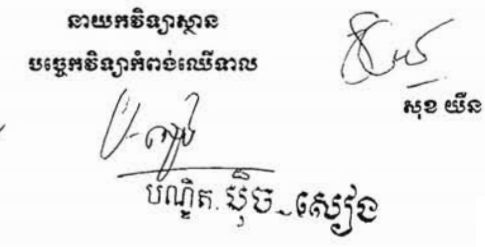 នាយកវិទ្យាស្ថាន
បច្ចេកវិទ្យាកំពង់ឈើទាល
សុខ យឺន
បណ្ឌិត. ប៉ិច_សៀង